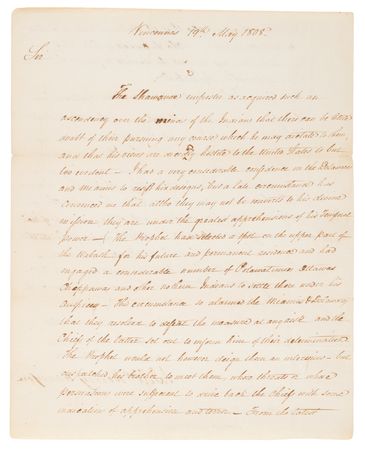 Vincennes 19th May 1808
Sir
The Shawanoe imposter has acquired such an
ascendency over the minds of the Indians that there can be little
doubt of their pursuing any course which he may dictate to them
and that his views are hostile to the United States is but
too evident — I had a very considerable confidence in the Delawares
and Miamis to resist his designs, but a late circumstance has
convinced me that altho they may not be converts to his divine
mission they are under the greatest apprehensions of his temporal
power — The Prophet has selected a spot on the upper part of
the Wabash for his future and permanent residence and had
engaged a considerable number of Potawatimies Ottawas
Chippawas and other northern Indians to settle there under his
auspices — The circumstance so alarmed the Miamis & Delawares
that they resolved to defeat the measure at any risk and the
Chiefs of the latter set out to inform him of their determination
The Prophet would not however deign them an interview — but
dispatched his brother to meet them, whose threats or whose
persuasions were sufficient to drive back the Chiefs with some
indication of apprehension and terror — From the latest